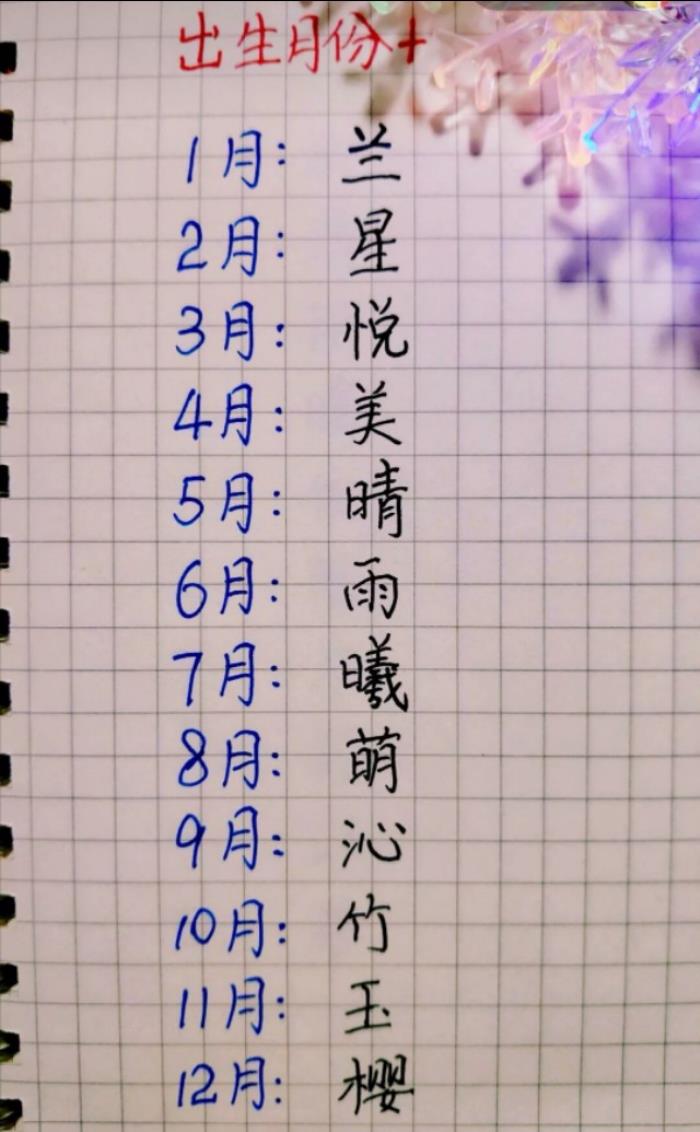 出生月份+
1月: 兰
2月: 星
3月: 悦
4月: 美
5月: 晴
6月: 雨
7月: 曦
8月: 萌
9月: 沁
10月: 竹
11月: 玉
12月: 樱